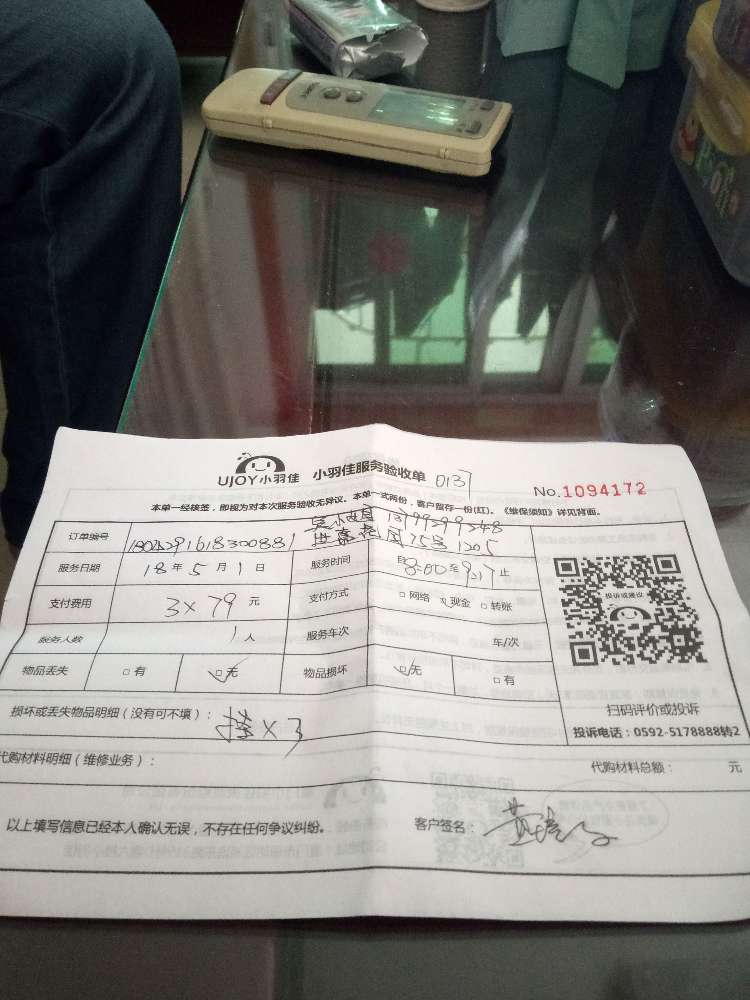 UJOY小羽佳 小羽佳服务验收单 0137
No.1094172
本单一经核签，即视为对本次服务验收无异议。本单一式两份，客户留存一份(红)。《维保须知》详见背面。
订单编号
服务日期 18 年 5 月 1 日 服务时间 自8:00至9:17止
支付费用 3×79 元 支付方式 □网络 □现金 □转账
服务人数 1 人 服务车次 车/次
物品丢失 □有 □无 物品损坏 □无 □有
投诉或建议
扫码评价或投诉
投诉电话：0592-5178888转2
损坏或丢失物品明细（没有可不填）： 挂×3
代购材料明细（维修业务）： 代购材料总额： 元
以上填写信息已经本人确认无误，不存在任何争议纠纷。 客户签名：